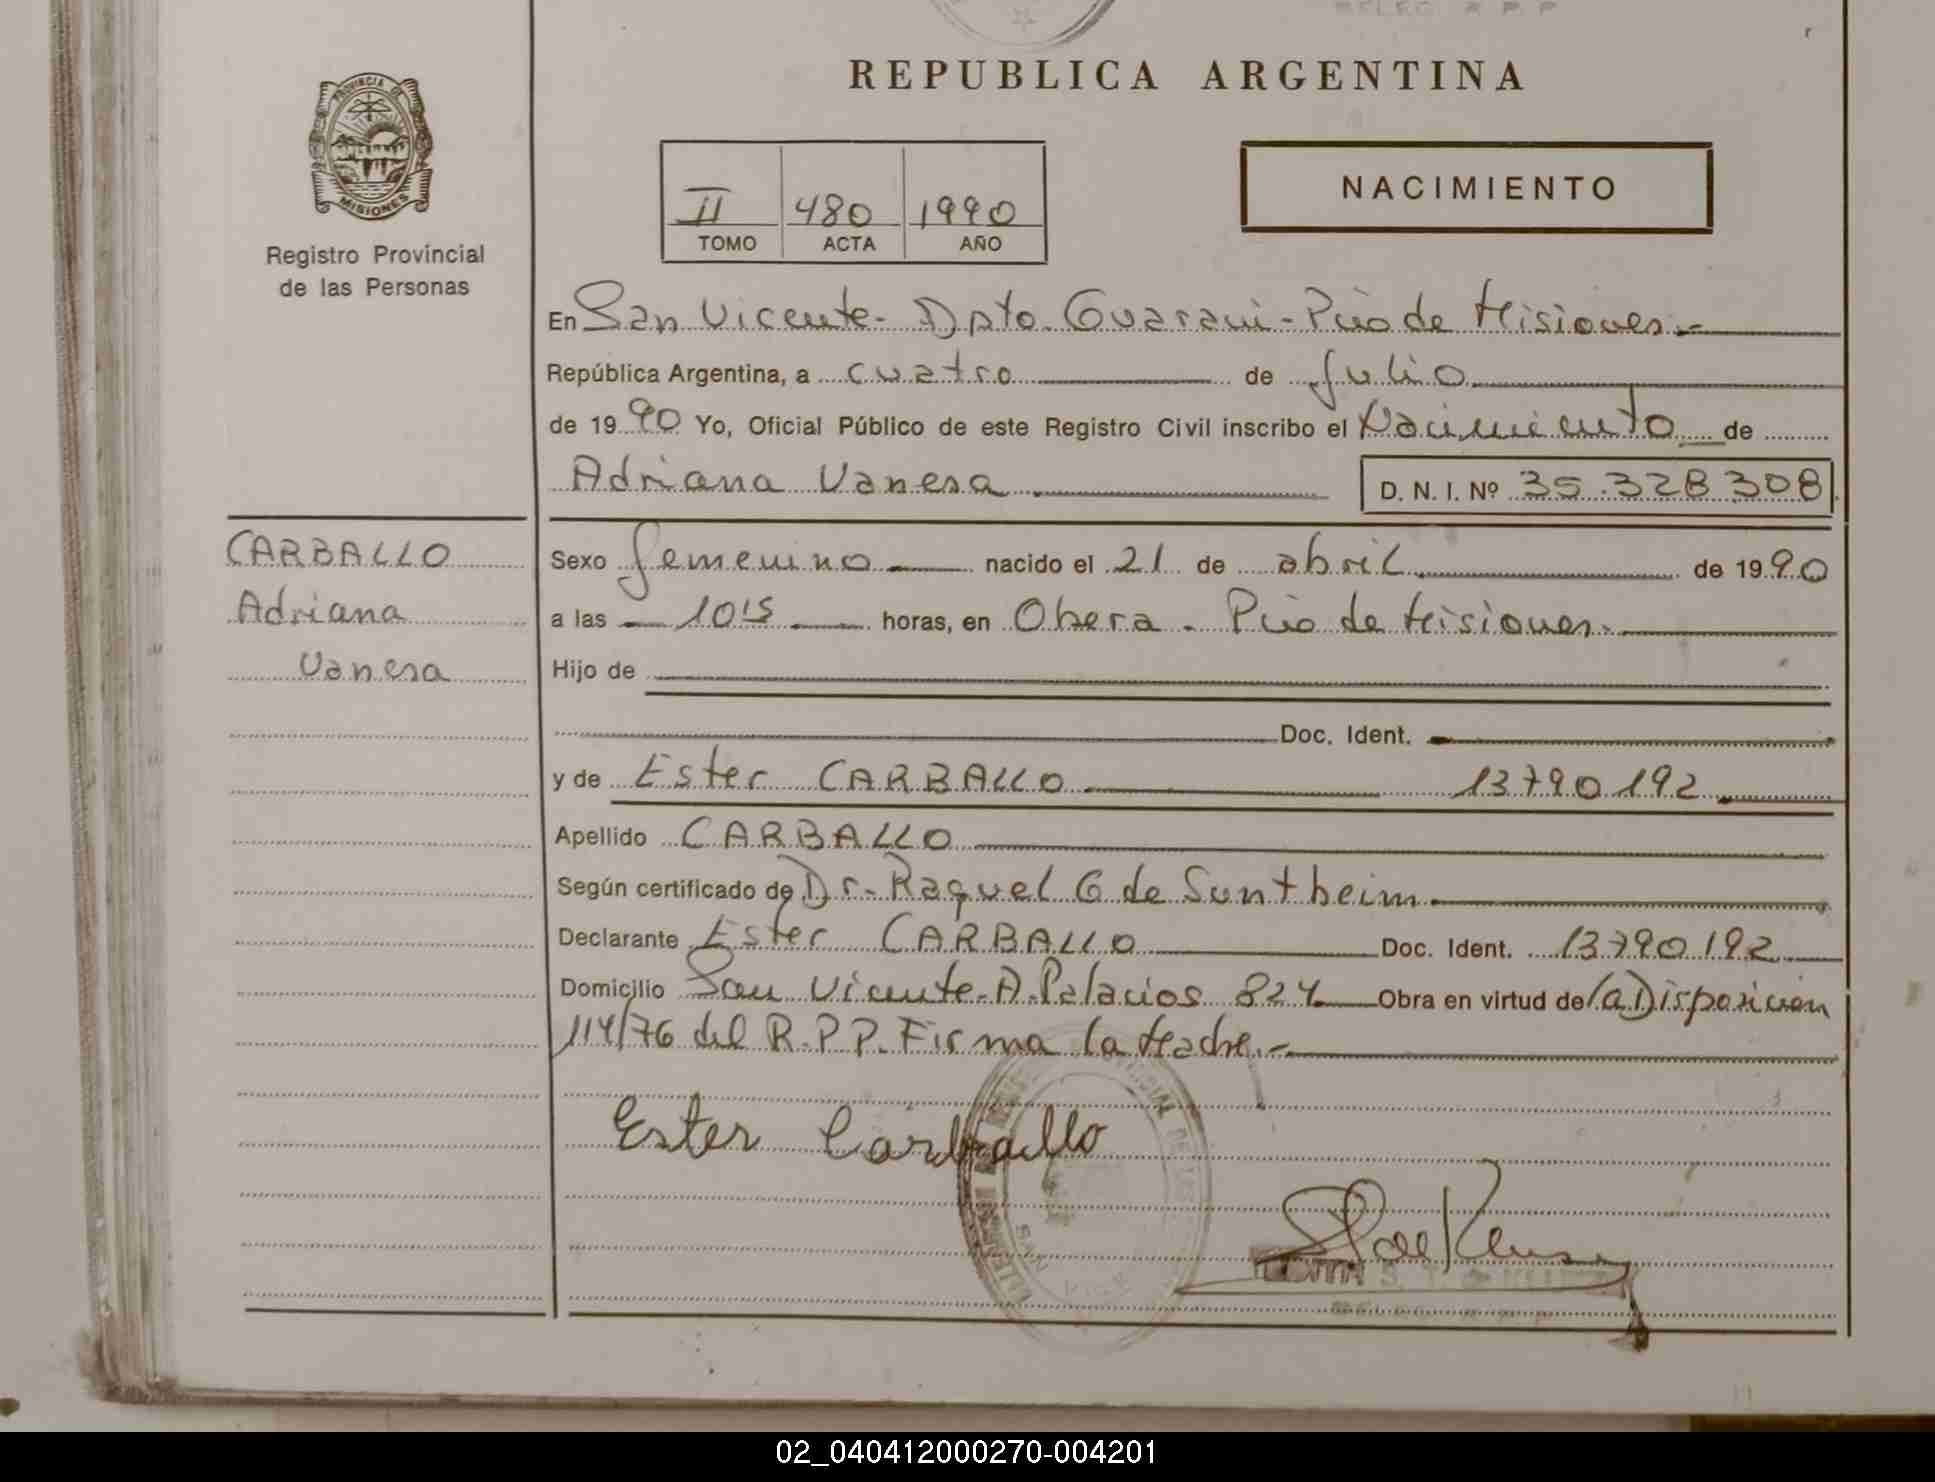 REPUBLICA ARGENTINA
PROVINCIA DE
MISIONES
Registro Provincial
de las Personas
II 480 1990
TOMO ACTA AÑO
NACIMIENTO
En San Vicente - Dpto. Guarani - Pcio de Misiones.-
República Argentina, a cuatro de Julio
de 1990 Yo, Oficial Público de este Registro Civil inscribo el Nacimiento de
Adriana Vanesa D. N. I. Nº 35.328308
CARBALLO
Adriana
Vanesa
Sexo femenino nacido el 21 de abril de 1990
a las 1015 horas, en Obera - Pcio de Misiones.
Hijo de
Doc. Ident.
y de Ester CARBALLO 13790192
Apellido CARBALLO
Según certificado de Dr. Raquel G de Suntheim
Declarante Ester CARBALLO Doc. Ident. 13790192
Domicilio San Vicente - A. Palacios 824 Obra en virtud de la Disposicion
114/76 del R.P.P. Firma la Madre.-
Ester Carballo
02_040412000270-004201